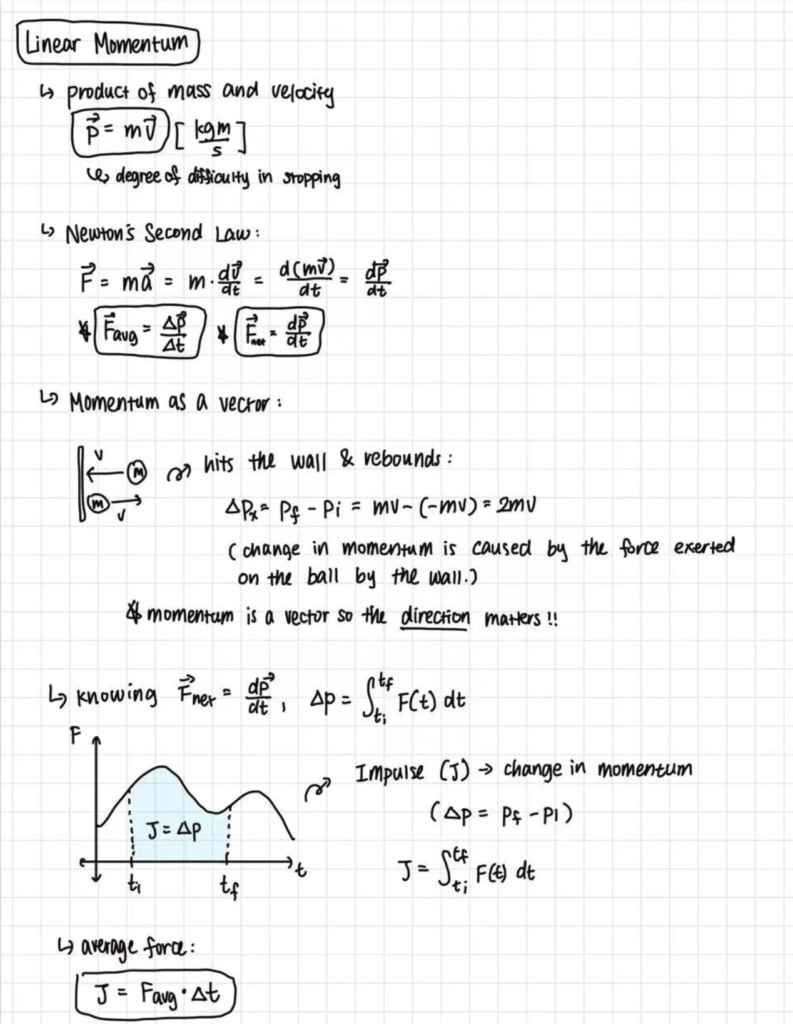 Linear Momentum
↳ product of mass and velocity
p⃗ = mv⃗ [kgm/s]
↳ degree of difficulty in stopping
↳ Newton's Second Law:
F⃗ = ma⃗ = m·dv⃗/dt = d(mv⃗)/dt = dp⃗/dt
* F⃗avg = Δp⃗/Δt * F⃗net = dp⃗/dt
↳ Momentum as a vector:
v
m
m
v
hits the wall & rebounds:
ΔPx = Pf - Pi = mv - (-mv) = 2mv
(change in momentum is caused by the force exerted
on the ball by the wall.)
* momentum is a vector so the direction matters!!
↳ knowing F⃗net = dp⃗/dt, Δp = ∫ti^tf F(t) dt
F
J = Δp
ti
tf
t
Impulse (J) → change in momentum
(Δp = Pf - Pi)
J = ∫ti^tf F(t) dt
↳ average force:
J = Favg · Δt